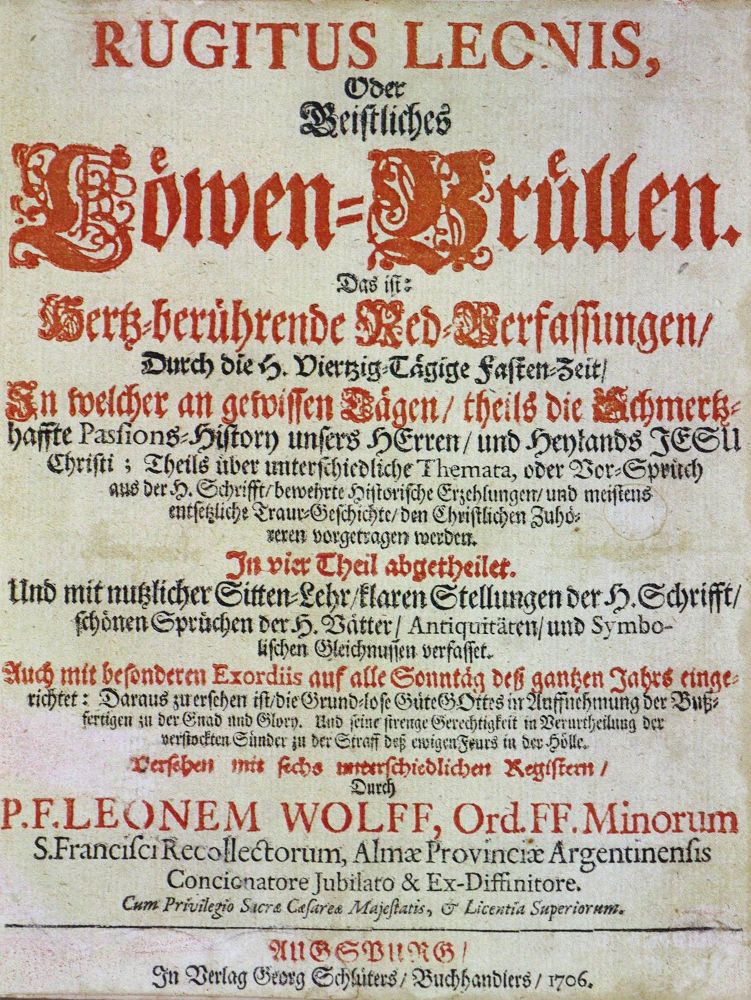 RUGITUS LEONIS,
Oder
Geistliches
Löwen-Brüllen.
Das ist:
Hertz-berührende Red-Verfassungen/
Durch die H. Viertzig-Tägige Fasten-Zeit/
In welcher an gewissen Tägen/ theils die Schmertz-
haffte Passions-History unsers HErren/ und Heylands JESU
Christi; Theils über unterschiedliche Themata, oder Vor-Spruch
aus der H. Schrifft/ bewehrte Historische Erzehlungen/ und meistens
entsetzliche Traur-Geschichte/ den Christlichen Zuhö-
reren vorgetragen werden.
In vier Theil abgetheilet.
Und mit nutzlicher Sitten-Lehr/ klaren Stellungen der H. Schrifft/
schönen Sprüchen der H. Vätter/ Antiquitäten/ und Symbo-
lischen Gleichnussen verfasset.
Auch mit besonderen Exordiis auf alle Sonntäg deß gantzen Jahrs einge-
richtet: Daraus zu ersehen ist/ die Grund-lose Güte GOttes in Auffnehmung der Buß-
fertigen zu der Gnad und Glory. Und seine strenge Gerechtigkeit in Verurtheilung der
verstockten Sünder zu der Straff deß ewigen Feurs in der Hölle.
Versehen mit sechs unterschiedlichen Registern/
Durch
P.F. LEONEM WOLFF, Ord. FF. Minorum
S. Francisci Recollectorum, Almæ Provinciæ Argentinensis
Concionatore Jubilato & Ex-Diffinitore.
Cum Privilegio Sacræ Cæsareæ Majestatis, & Licentia Superiorum.
AUGSPURG/
In Verlag Georg Schlüters/ Buchhandlers/ 1706.